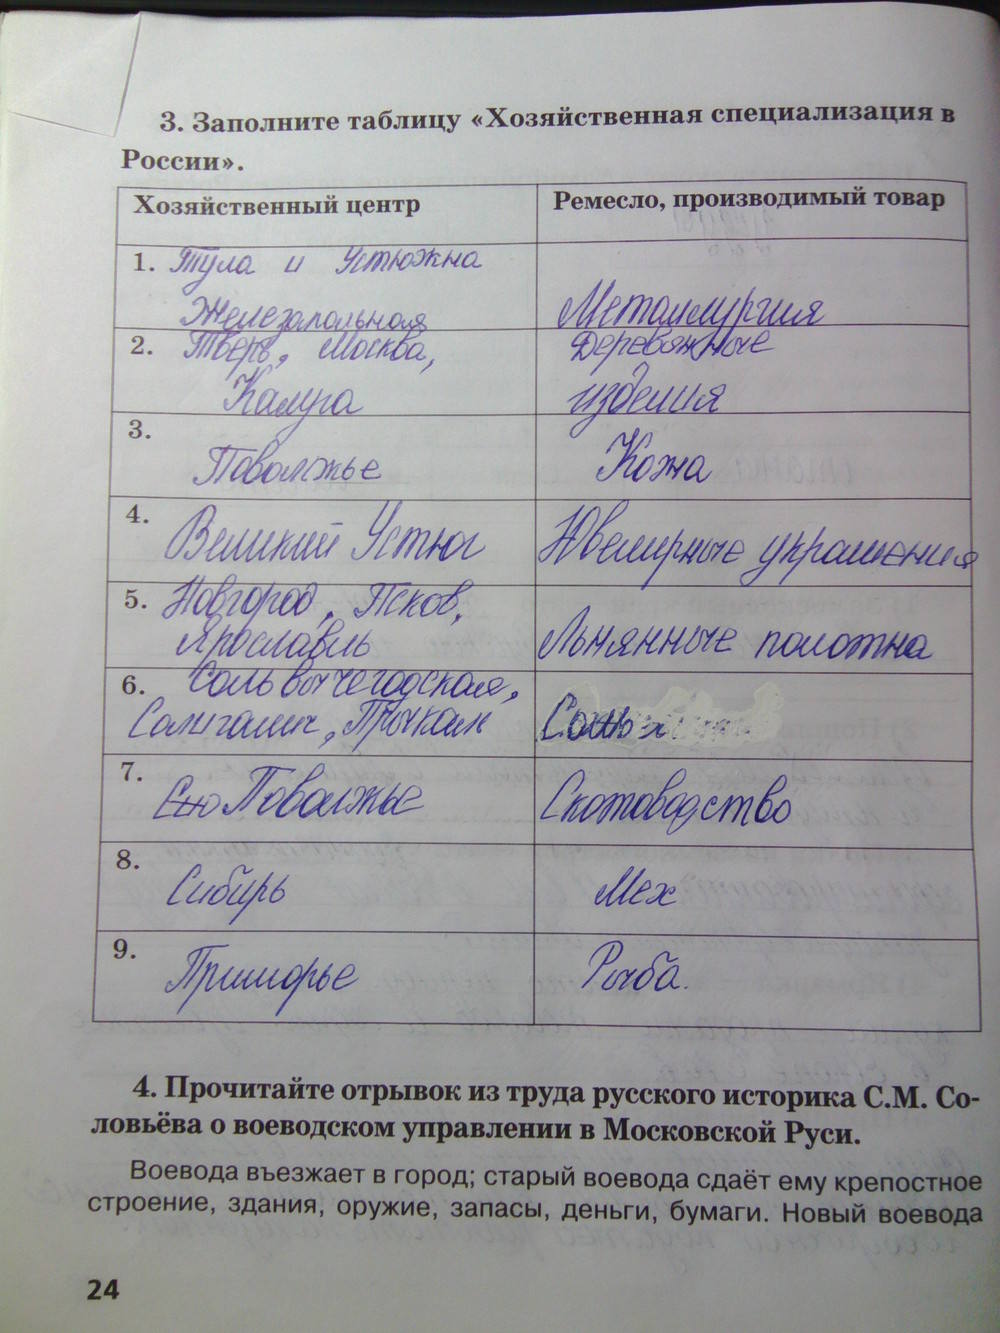 3. Заполните таблицу «Хозяйственная специализация в
России».
Хозяйственный центр
Ремесло, производимый товар
1. Тула и Устюжна
Железапольная
Металлургия
2. Тверь, Москва,
Калуга
Деревяжные
изделия
3.
Поволжье
Кожа
4. Великий Устюг
Ювелирные украшения
5. Новгород, Псков,
Ярославль
Льнянные полотна
6. Соль Вычегодская,
Солигалич, Прикам
7.
Поволжье
Скотоводство
8.
Сибирь
Мех
9.
Приморье
Рыба.
4. Прочитайте отрывок из труда русского историка С.М. Со-
ловьёва о воеводском управлении в Московской Руси.
Воевода въезжает в город; старый воевода сдаёт ему крепостное
строение, здания, оружие, запасы, деньги, бумаги. Новый воевода
24